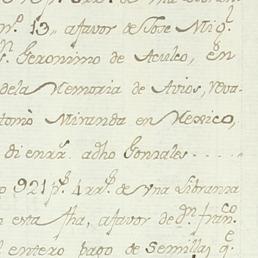 nº. 13,, afavor de Jose Mig.
n. Geronimo de Aculco, en
dela Memoria de Avios, reva
tomò Miranda en Mexico,
di enrr. adho Gonzales.....
921 p.s 4 rr.s de vna Libranza
esta fha, afavor de D.n Fran.co
entero pago de Semillas, q.e